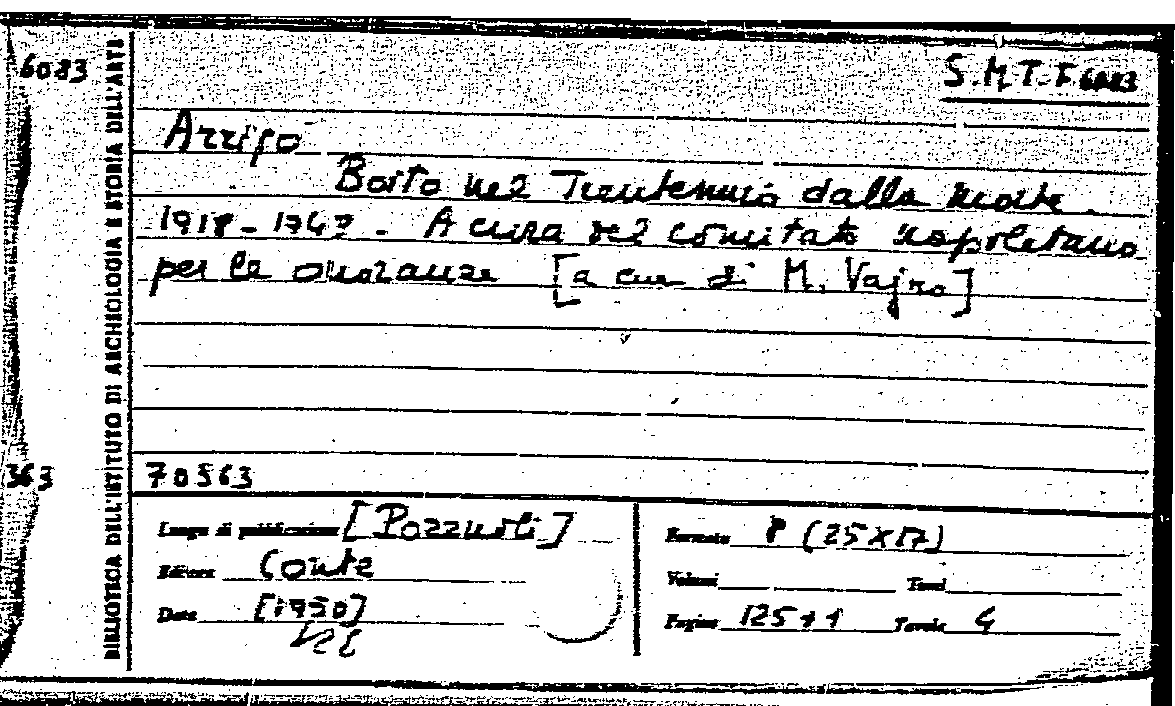 6083
S.M.T. F 6083
BIBLIOTECA DELL'ISTITUTO DI ARCHEOLOGIA E STORIA DELL'ARTE
Arrigo
Boito nel Trentennio dalla morte.
1918-1948. A cura del comitato napoletano
per le onoranze [a cura di M. Vajro]
363
70563
Luogo di pubblicazione [Pozzuoli]
Editore Conte
Data [1950]
Formato 8 (25x17)
Volumi Tomi
Pagine 125+1 Tavole 4